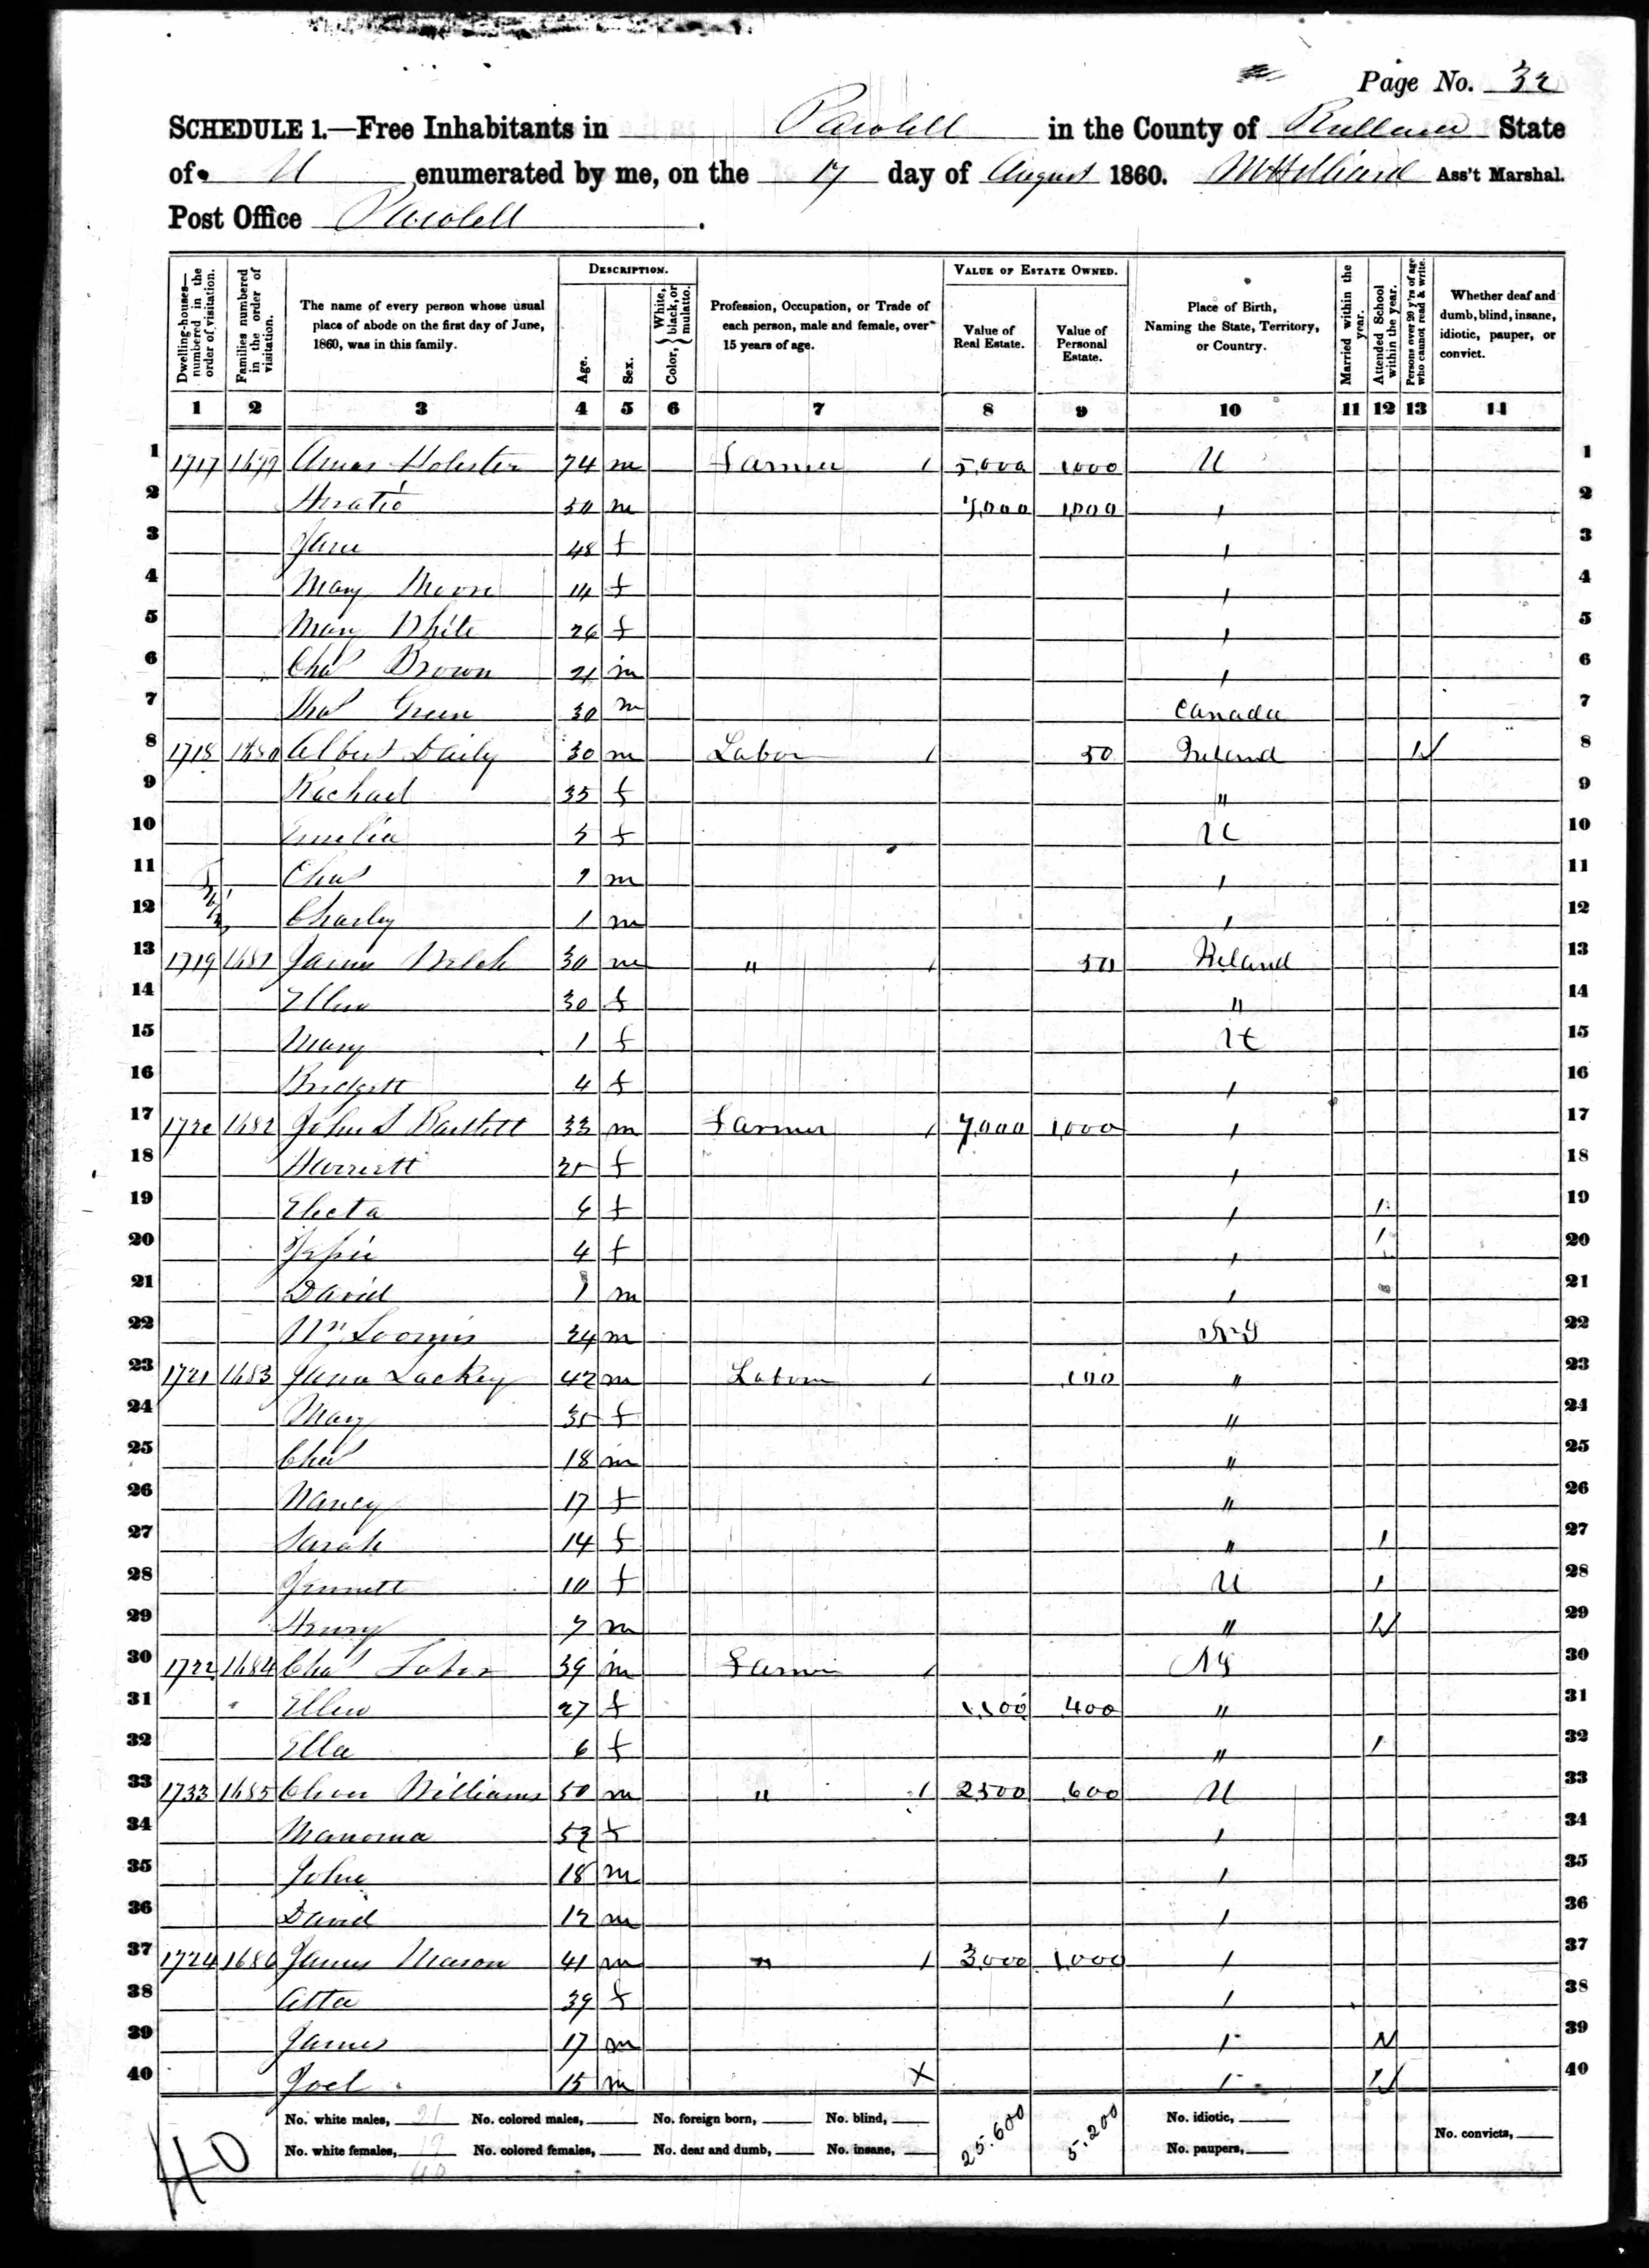 Page No. 32
SCHEDULE 1.—Free Inhabitants in Pawlett in the County of Rutland State
of Vt enumerated by me, on the 17 day of August 1860. Ass't Marshal.
Post Office Pawlett.
Dwelling-houses—numbered in the order of visitation.
Families numbered in the order of visitation.
The name of every person whose usual place of abode on the first day of June, 1860, was in this family.
DESCRIPTION.
Age.
Sex.
Color, { White, black, or mulatto.
Profession, Occupation, or Trade of each person, male and female, over 15 years of age.
VALUE OF ESTATE OWNED.
Value of Real Estate.
Value of Personal Estate.
Place of Birth, Naming the State, Territory, or Country.
Married within the year.
Attended School within the year.
Persons over 20 y'rs of age who cannot read & write.
Whether deaf and dumb, blind, insane, idiotic, pauper, or convict.
1 2 3 4 5 6 7 8 9 10 11 12 13 14
1 1717 1679 74 m Farmer / 5,000 1000 Vt 1
2 Horatio 50 m 1,000 / 2
3 Jane 48 f / 3
4 Mary Moore 14 f / 4
5 Mary White 26 f / 5
6 Chas Brown 21 m / 6
7 Green 30 m Canada 7
8 1718 1680 Albert Daily 30 m Labor / 50 Ireland 8
9 Rachael 35 f " 9
10 f Vt 10
11 Chas m / 11
12 Charley 1 m / 12
13 1719 1681 James Welch 30 m " / 50 Ireland 13
14 Ellen 30 f " 14
15 Mary 1 f Vt 15
16 Bridgett 4 f / 16
17 1720 1682 John S Bartlett 33 m Farmer / 7,000 1,000 / 17
18 Harriett f / 18
19 Electa 6 f / / 19
20 4 f / / 20
21 David 1 m / 21
22 Wm Loomis 24 m NY 22
23 1721 1683 Lackey 42 m Labor / 100 " 23
24 Mary 35 f " 24
25 Chas 18 m " 25
26 Nancy 17 f " 26
27 Sarah 14 f " / 27
28 Jennett 10 f Vt / 28
29 Henry 7 m " 29
30 1722 1684 Chas 39 m Farmer / NY 30
31 Ellen 27 f 1,100 400 " 31
32 Ella 6 f " / 32
33 1733 1685 Oliver Williams 50 m " / 2500 600 Vt 33
34 Manoma f / 34
35 John 18 m / 35
36 David 12 m / 36
37 1724 1686 James Mason 41 m " / 3,000 1,000 / 37
38 Atta 39 f / 38
39 James 17 m / 39
40 Joel 15 m X / 40
No. white males, 21 No. colored males, No. foreign born, No. blind, 25.600 5.200 No. idiotic,
No. white females, 19 No. colored females, No. deaf and dumb, No. insane, No. paupers, No. convicts,
40
40